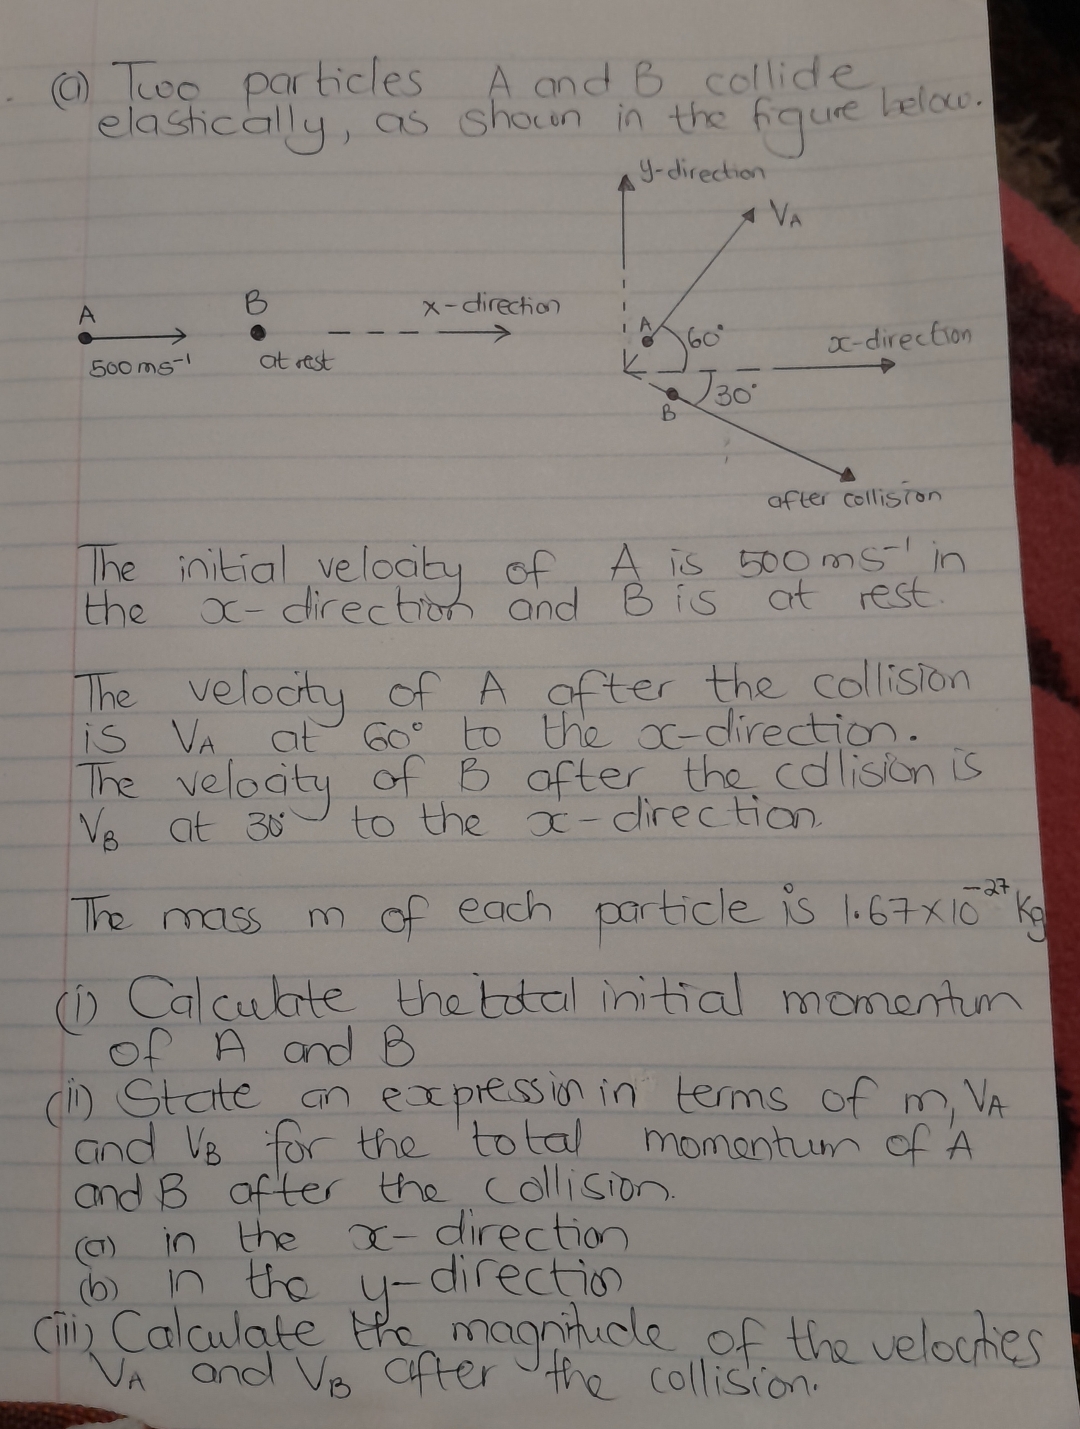 (a) Two particles A and B collide
elastically, as shown in the figure below.
y-direction
VA
A
B
x-direction
500ms⁻¹
at rest
A
60°
x-direction
30°
B
after collision
The initial velocity of A is 500ms⁻¹ in
the x-direction and B is at rest.
The velocity of A after the collision
is VA at 60° to the x-direction.
The velocity of B after the collision is
VB at 30° to the x-direction.
The mass m of each particle is 1.67x10⁻²⁷ Kg
(i) Calculate the total initial momentum
of A and B
(ii) State an expression in terms of m, VA
and VB for the total momentum of A
and B after the collision.
(a) in the x-direction
(b) in the y-direction
(iii) Calculate the magnitude of the velocities
VA and VB after the collision.